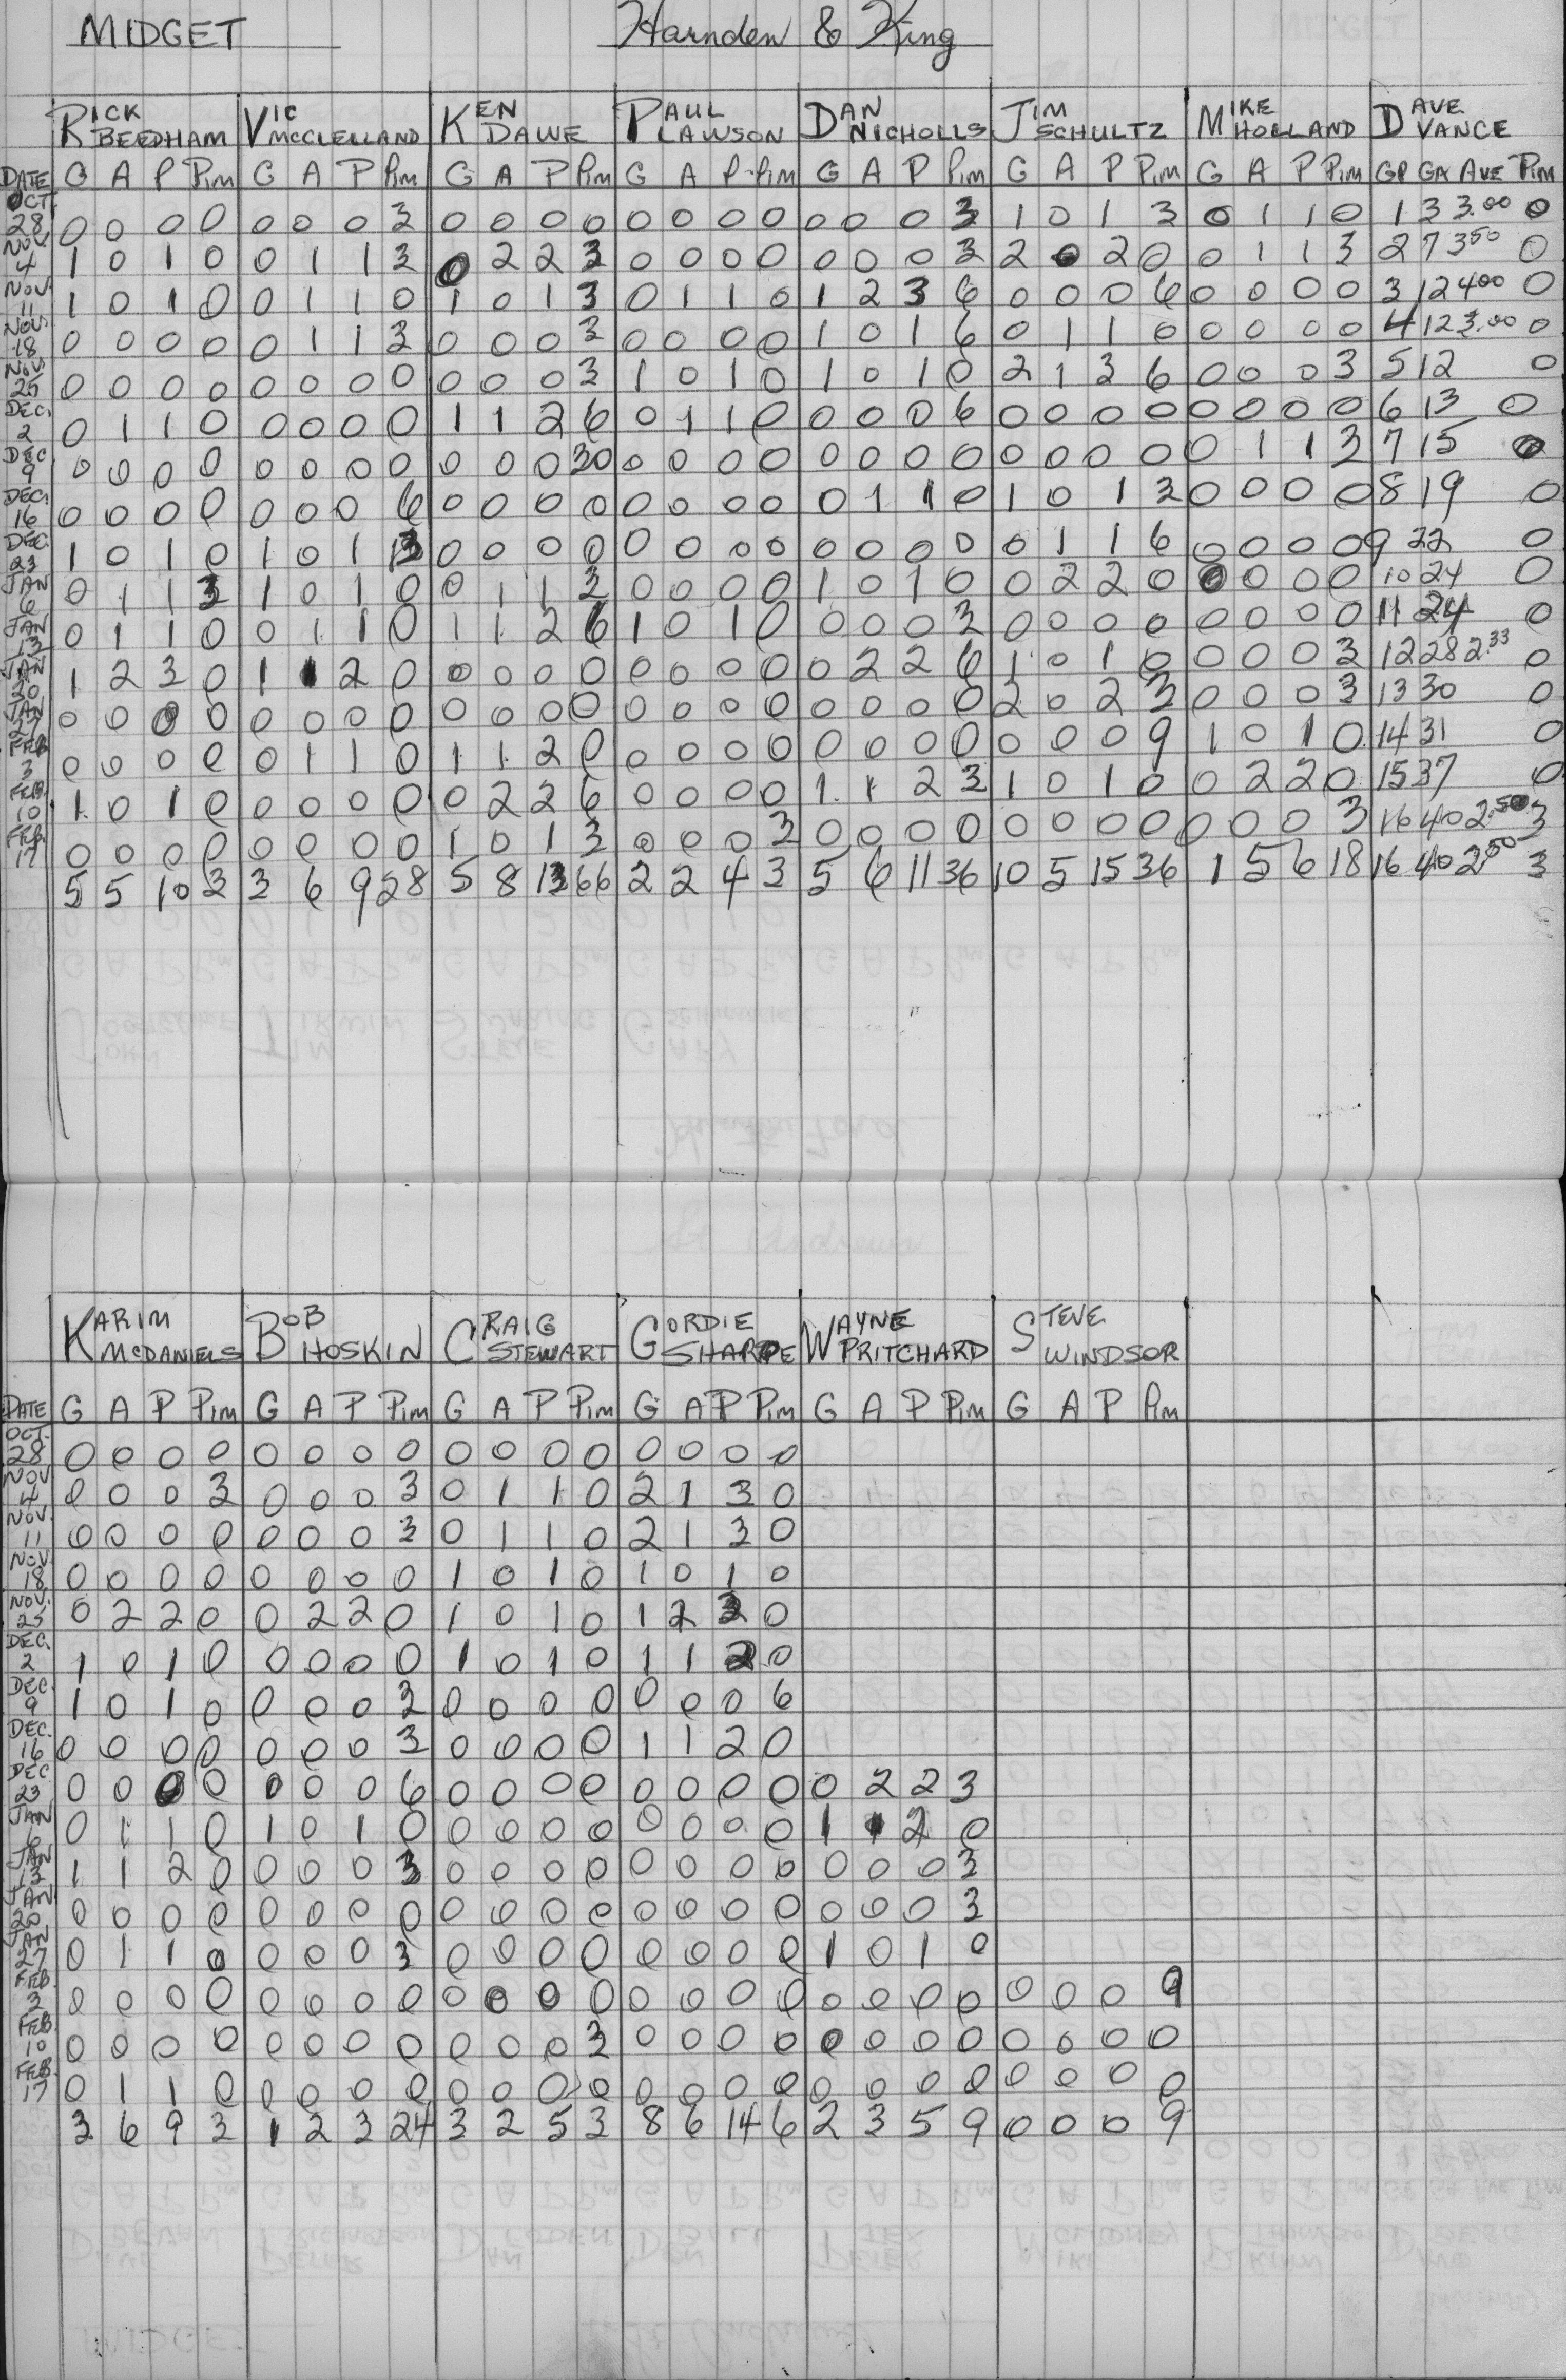 MIDGET Harnden & King
RICK BEEDHAM VIC MCCLELLAND KEN DAWE PAUL LAWSON DAN NICHOLLS JIM SCHULTZ MIKE HOLLAND DAVE VANCE
DATE G A P Pim G A P Pim G A P Pim G A P Pim G A P Pim G A P Pim G A P Pim GP GA AVE Pim
OCT. 28 0 0 0 0 0 0 0 3 0 0 0 0 0 0 0 0 0 0 0 3 1 0 1 3 0 1 1 0 1 3 3.00 0
NOV. 4 1 0 1 0 0 1 1 3 0 2 2 3 0 0 0 0 0 0 0 3 2 0 2 0 0 1 1 3 2 7 3.50 0
NOV. 11 1 0 1 0 0 1 1 0 1 0 1 3 0 1 1 0 1 2 3 6 0 0 0 6 0 0 0 0 3 12 4.00 0
NOV. 18 0 0 0 0 0 1 1 3 0 0 0 3 0 0 0 0 1 0 1 6 0 1 1 0 0 0 0 0 4 12 3.00 0
NOV. 25 0 0 0 0 0 0 0 0 0 0 0 3 1 0 1 0 1 0 1 0 2 1 3 6 0 0 0 3 5 12 0
DEC. 2 0 1 1 0 0 0 0 0 1 1 2 6 0 1 1 0 0 0 0 6 0 0 0 0 0 0 0 0 6 13 0
DEC 9 0 0 0 0 0 0 0 0 0 0 0 30 0 0 0 0 0 0 0 0 0 0 0 0 0 1 1 3 7 15 0
DEC. 16 0 0 0 0 0 0 0 6 0 0 0 0 0 0 0 0 0 1 1 0 1 0 1 3 0 0 0 0 8 19 0
DEC. 23 1 0 1 0 1 0 1 13 0 0 0 0 0 0 0 0 0 0 0 0 0 1 1 6 0 0 0 0 9 22 0
JAN 6 0 1 1 3 1 0 1 0 0 1 1 3 0 0 0 0 1 0 1 0 0 2 2 0 0 0 0 0 10 24 0
JAN 13 0 1 1 0 0 1 1 0 1 1 2 6 1 0 1 0 0 0 0 3 0 0 0 0 0 0 0 0 11 24 0
JAN 20 1 2 3 0 1 1 2 0 0 0 0 0 0 0 0 0 0 2 2 6 1 0 1 0 0 0 0 3 12 28 2.33 0
JAN 27 0 0 0 0 0 0 0 0 0 0 0 0 0 0 0 0 0 0 0 0 2 0 2 3 0 0 0 3 13 30 0
FEB 3 0 0 0 0 0 1 1 0 1 1 2 0 0 0 0 0 0 0 0 0 0 0 0 9 1 0 1 0 14 31 0
FEB. 10 1 0 1 0 0 0 0 0 0 2 2 6 0 0 0 0 1 1 2 3 1 0 1 0 0 2 2 0 15 37 0
FEB. 17 0 0 0 0 0 0 0 0 1 0 1 3 0 0 0 3 0 0 0 0 0 0 0 0 0 0 0 3 16 40 2.50 3
5 5 10 3 3 6 9 28 5 8 13 66 2 2 4 3 5 6 11 36 10 5 15 36 1 5 6 18 16 40 2.50 3
KARIM MCDANIELS BOB HOSKIN CRAIG STEWART GORDIE SHARPE WAYNE PRITCHARD STEVE WINDSOR
DATE G A P Pim G A P Pim G A P Pim G A P Pim G A P Pim G A P Pim
OCT. 28 0 0 0 0 0 0 0 0 0 0 0 0 0 0 0 0
NOV 4 0 0 0 3 0 0 0 3 0 1 1 0 2 1 3 0
NOV. 11 0 0 0 0 0 0 0 3 0 1 1 0 2 1 3 0
NOV. 18 0 0 0 0 0 0 0 0 1 0 1 0 1 0 1 0
NOV. 25 0 2 2 0 0 2 2 0 1 0 1 0 1 2 3 0
DEC. 2 1 0 1 0 0 0 0 0 1 0 1 0 1 1 2 0
DEC. 9 1 0 1 0 0 0 0 3 0 0 0 0 0 0 0 6
DEC. 16 0 0 0 0 0 0 0 3 0 0 0 0 1 1 2 0
DEC 23 0 0 0 0 0 0 0 6 0 0 0 0 0 0 0 0 0 2 2 3
JAN 6 0 1 1 0 1 0 1 0 0 0 0 0 0 0 0 0 1 1 2 0
JAN 13 1 1 2 0 0 0 0 3 0 0 0 0 0 0 0 0 0 0 0 3
JAN 20 0 0 0 0 0 0 0 0 0 0 0 0 0 0 0 0 0 0 0 3
JAN 27 0 1 1 0 0 0 0 3 0 0 0 0 0 0 0 0 1 0 1 0
FEB. 3 0 0 0 0 0 0 0 0 0 0 0 0 0 0 0 0 0 0 0 0 0 0 0 9
FEB. 10 0 0 0 0 0 0 0 0 0 0 0 3 0 0 0 0 0 0 0 0 0 0 0 0
FEB. 17 0 1 1 0 0 0 0 0 0 0 0 0 0 0 0 0 0 0 0 0 0 0 0 0
3 6 9 3 1 2 3 24 3 2 5 3 8 6 14 6 2 3 5 9 0 0 0 9